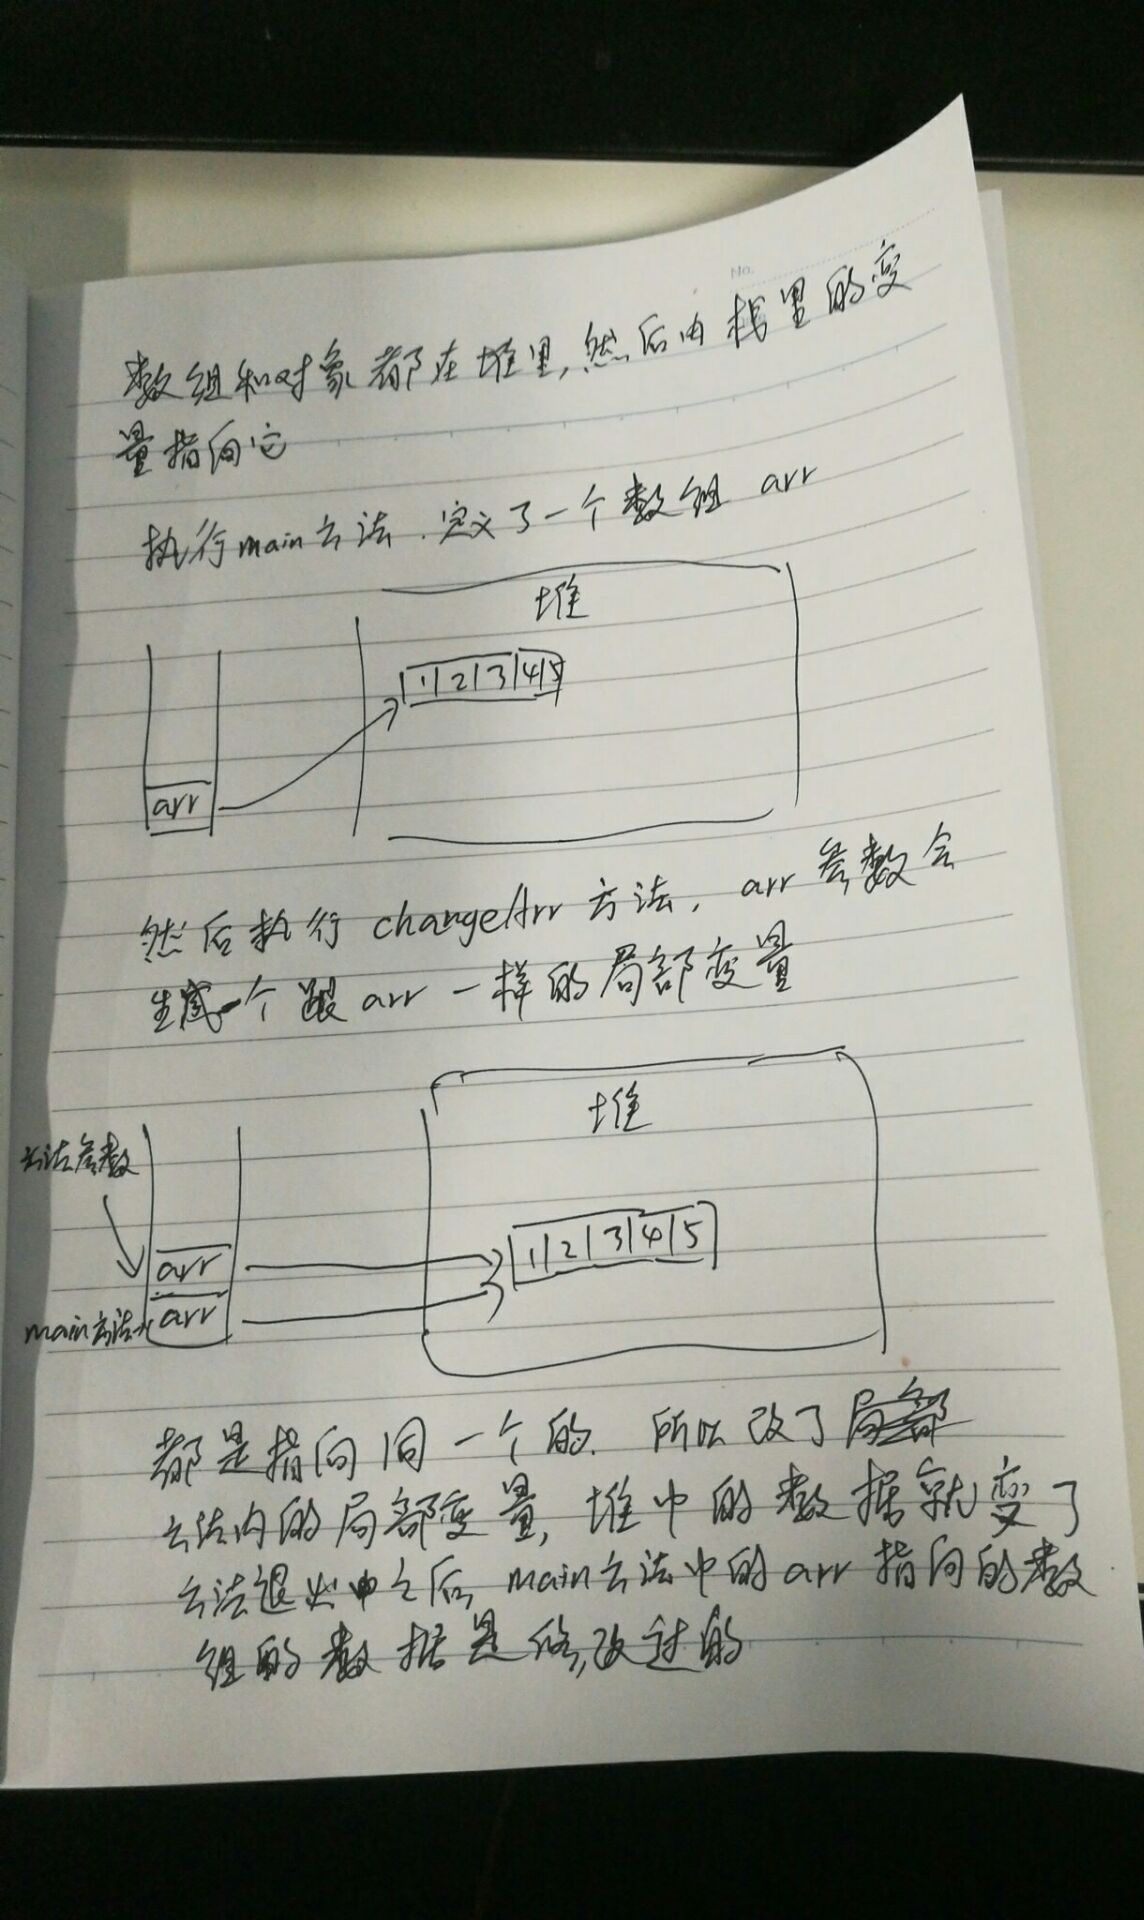 No.
数组和对象都在堆里,然后由栈里的变
量指向它
执行main方法.定义了一个数组 arr
堆
1 2 3 4 5
arr
然后执行 changeArr 方法, arr 参数会
生成一个跟 arr 一样的局部变量
堆
方法参数
1 2 3 4 5
arr
main方法 arr
都是指向同一个的. 所以改了
方法内的局部变量, 堆中的数据就变了
方法退出之后 main方法中的 arr 指向的数
组的数据是修改过的